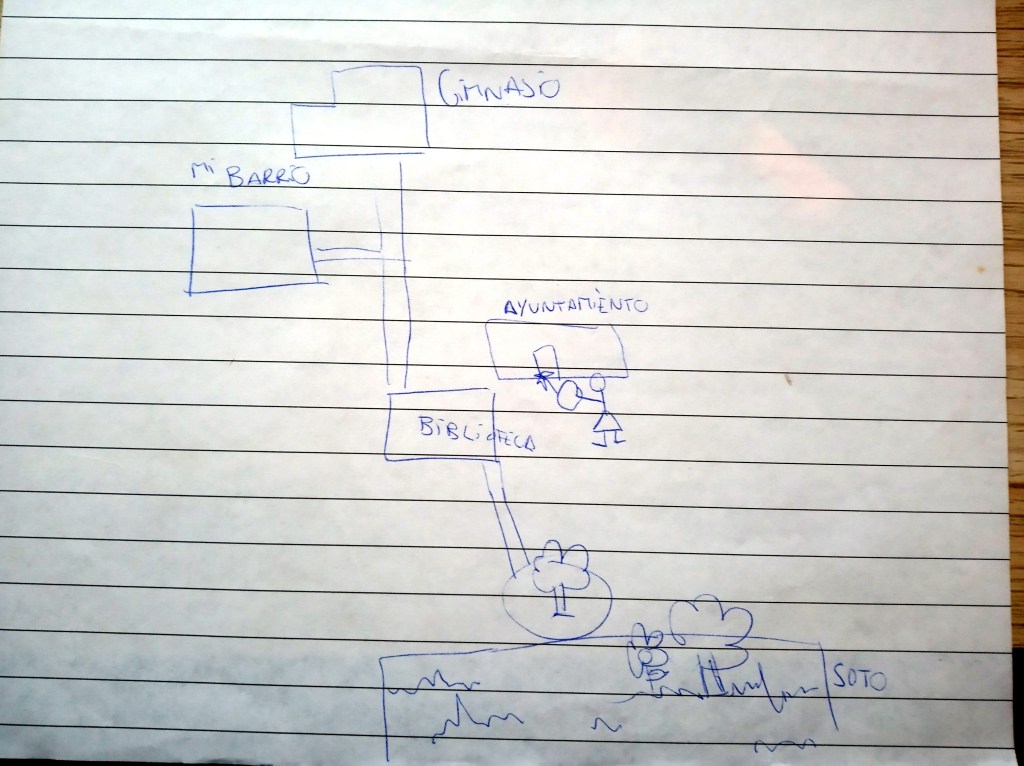 GIMNASIO
Mi BARRIO
AYUNTAMIENTO
BIBLIOTECA
SOTO